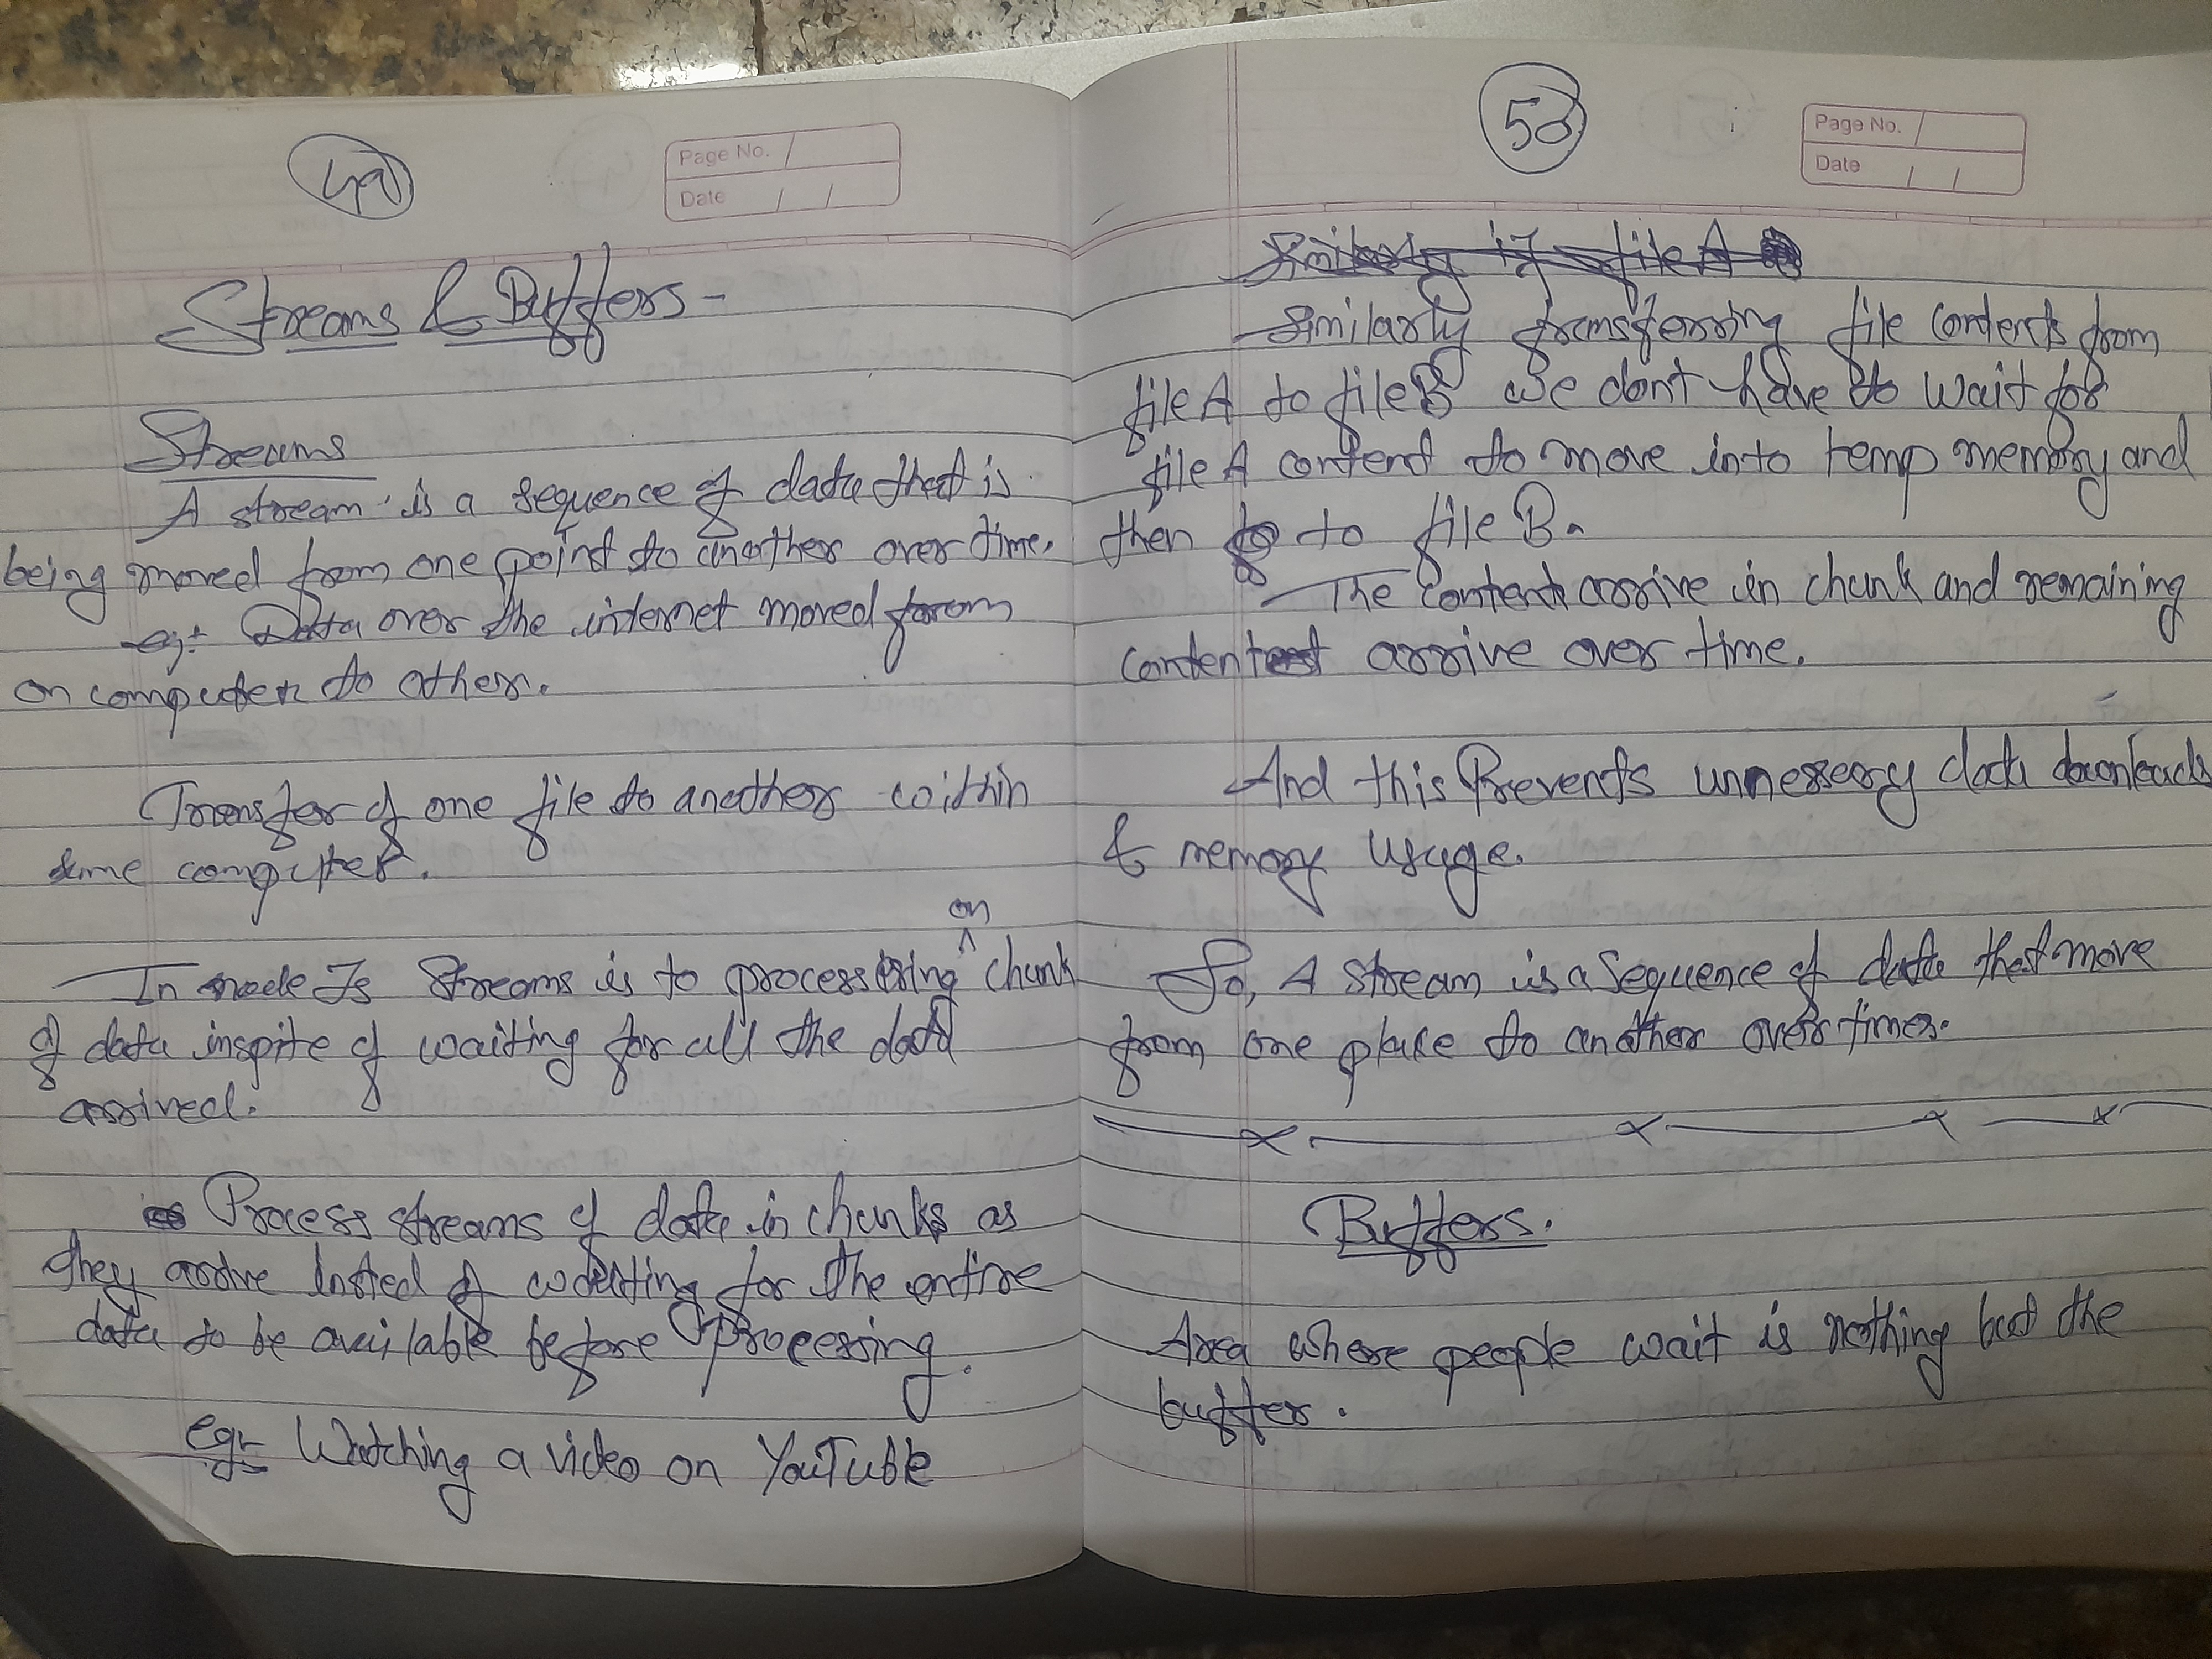 49
Page No.
Date
Streams & Buffers -
Streams
A stream is a sequence of data that is
being moved from one point to another over time.
eg:- Data over the internet moved from
on computer to other.
Transfer of one file to another within
same computer.
on
In node Js Streams is to processing ^ chunk
of data inspite of waiting for all the data
arrived.
Process streams of data in chunks as
they arrive insted of waiting for the entire
data to be available before processing.
eg:- Watching a video on YouTube
50
Page No.
Date
Similarly if file A
Similarly transferring file contents from
file A to file B we dont have to wait for
file A content to move into temp memory and
then to file B.
The content arrive in chunk and remaining
content arrive over time.
And this Prevents unnessery data downloads
& memory usage.
So, A stream is a sequence of data that move
from one place to another over times.
Buffers.
Area where people wait is nothing but the
buffer.